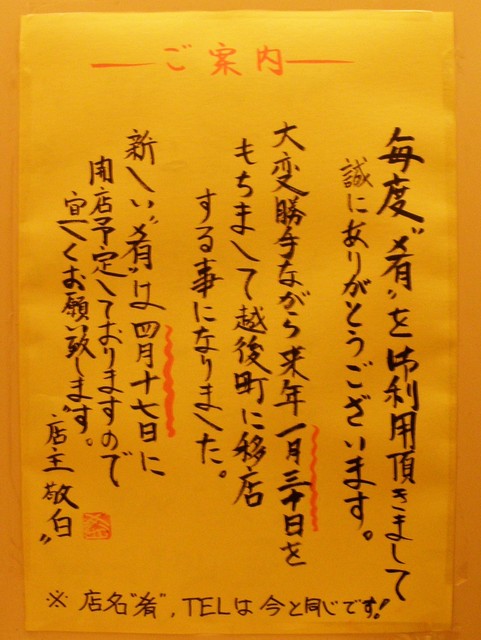 ご案内
毎度〝肴〟を御利用頂きまして
誠にありがとうございます。
大変勝手ながら来年一月三十日を
もちまして越後町に移店
する事になりました。
新しい〝肴〟は四月十七日に
開店予定しておりますので
宜しくお願い致します。
〝店主敬白〟
※店名〝肴〟,TELは今と同じです!